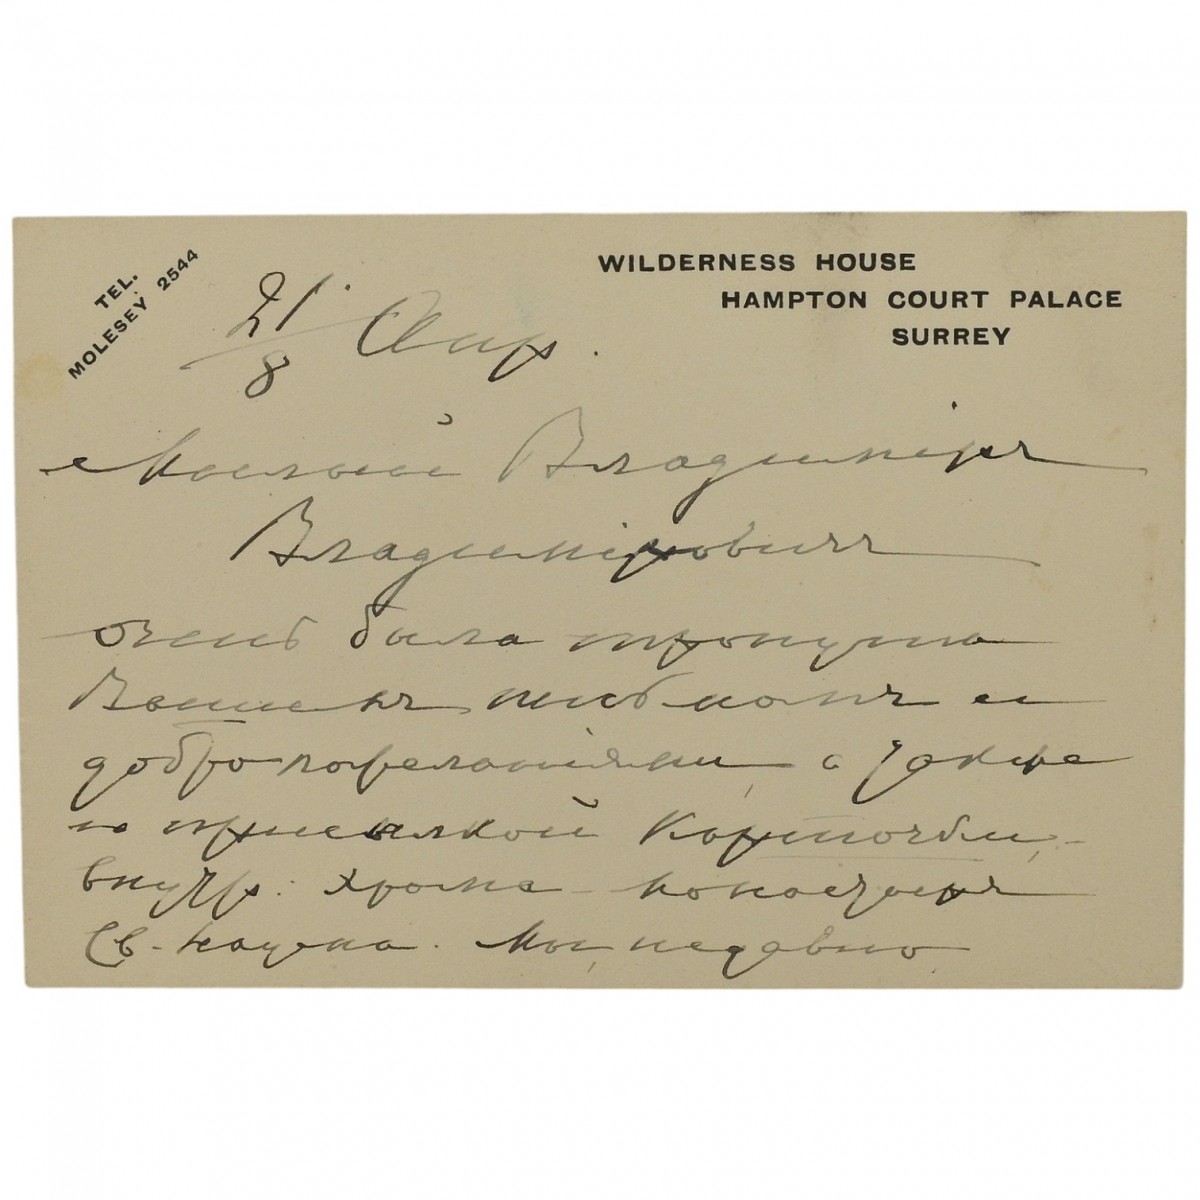 TEL.
MOLESEY 2544
WILDERNESS HOUSE
HAMPTON COURT PALACE
SURREY
21/8 Апр.
Милый Владиміръ
Владиміровичъ
очень была тронута
Вашимъ письмомъ и
доброжеланіями, а также
и присылкой Карточки,
внутр. храма
Св. Мы недавно